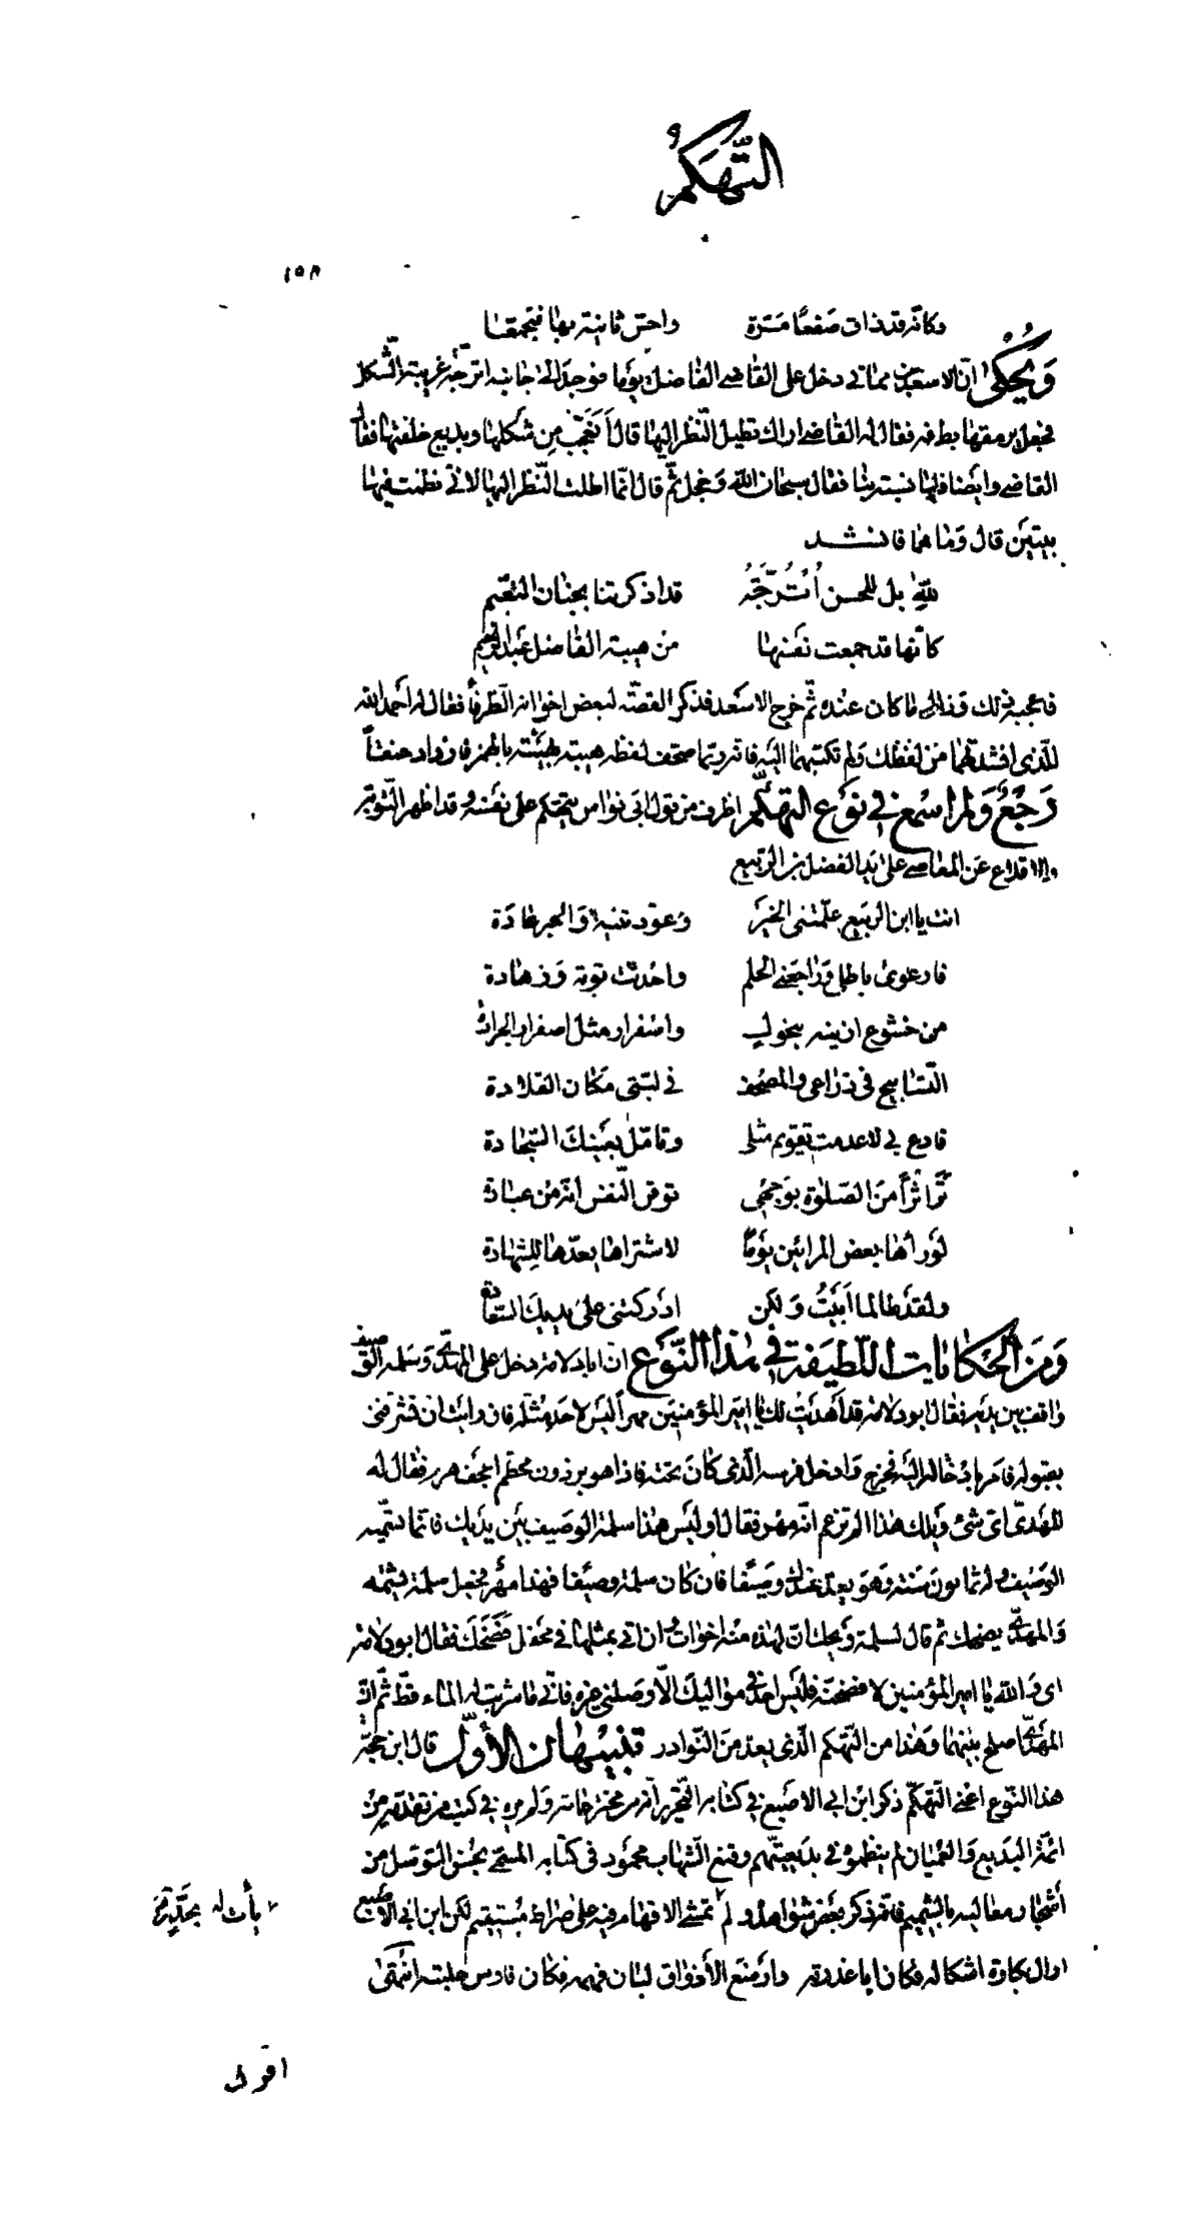 التّهكّمُ
١٥٨
وكانّه قد ذاق صَفعًا مَرّة واحسّ ثانية بها فتجمّعا
وَيُحكى انّ الاسعد بن مماتي دخل على القاضي الفاضل يومًا فوجد الى جانبه اترجّة غريبة الشّكل
فجعل يرمقها بطرفه فقال له القاضي اراك تطيل النّظر اليها قال اَتعَجّبُ مِن شكلها وبديع خلقتها فقال
القاضي وايضًا فلها نسبة بنا فقال سبحان الله وخجل ثمّ قال انّما اطلت النّظر اليها لانّي نظمت فيها
بيتَين قال وَما هما فانشد
للّهِ بل للحسن اُتْرُجَّةُ قد اذكرتنا بجنان النّعيم
كانّها قد جمعت نفسَها من هيبة الفاضل عبد الرّحيم
فاعجبه ذلك وَ ما كان عنده ثمّ خرج الاسعد فذكر القصّة لبعض اخوانه الظّرفاء فقال له احمد الله
الّذي انشدتهما من لفظك ولم تكتبهما اليه فانّه ربّما صحّف لفظه هيبة بهيئة بالهمز فازداد حنقًا
رَجْعٌ وَلم اسمع في نَوع التّهكّم اظرف من قول ابي نواس يتهكّم على نفسه وقد اظهر التّوبة
والاقلاع عَن المعاصي على يد الفضل بن الرّبيع
انت يا ابن الرّبيع علّمتني الخَير وعوّدتنيه وَالخير عادَة
فارعوى باطلي وَراجعني الحلم واحدثت توبة وَزهادة
من خشوع ازينه بنحول واصفرار مثل اصفرار الجرادة
التّسابيح في ذراعي والمصحف في لبّتي مَكان القلادة
فادع بي لا عدمت تقويم مثلي وتامّل بعَينك السّجّادة
تَرَ اثرًا مِنَ الصّلوة بوَجهي توقن النّفس انّه من عبادة
لَو رأها بعض المرائين يَومًا لاشتراها يعدّها لِلشّهادة
ولقد طالما اَبَيتُ وَلكن ادركتني على يدَيكَ السّعادة
وَمَن الحكايات اللّطيفة في هٰذا النّوع انّ ابا دلامة دخل على المهدي وَسلمة الوصيف
واقف بين يديه فقال ابو دلامة قد اَهدَيت لك يا امير المؤمنين مهرا ليس لاحد مثله فان رايت ان تشرّفني
بقبوله فامر بادخاله اليه فخرج وَادخل فرسه الّذي كان تحته فاذا هو برذون محطّم اعجف هرم فقال له
المهدي ايّ شئ ويلك هذا الم تزعم انّه مهر فقال اوليس هذا سلمة الوصيف بَين يدَيك قائمًا تسمّيه
الوَصيف وله ثمانون سَنة وَهو بعد عندك وَصيفًا فان كان سلمة وصيفا فهذا مهر فجعل سلمة يشتمه
وَالمهدي يضحك ثم قال لسلمة وَيحك انّ لهذه منه اخوات وَان اتى بمثلها في محفل فضَحَكَ فقال ابو دلامة
اي وَالله يا امير المؤمنين لافضحنّه فلَيس احد في مواليك الّا وصلني غيره فانّي ما شربت له الماء قطّ ثمّ انّ
المهدي اصلح بينهما وَهٰذا من التّهكّم الّذي يعدّ منَ النّوادر تنبيهان الأوّل قال ابن حجّة
هذا النّوع اعني التّهكّم ذكر ابن ابي الاصبع في كتابه التّحرير انّه من مخترعاته وَلم يره في كتب من تقدّمه من
ائمّة البَديع وَالعميان لم ينظموه في بديعيّتهم وقنع الشّهاب محمود في كتابه المسمّى بحُسن التّوسّل من
أشجار معاليه بالشّميم فانّه ذكر بعض شواهده ولم تمشّ الافهام فيه على صراط مُستقيم لكن ابن ابي الاصبع
ازال بكارة اشكاله فكان ابا عذرته وارضَع الأذواق لبان فهمه فكان فارس حلبته انتهى
يأت له بحدّ
اقول